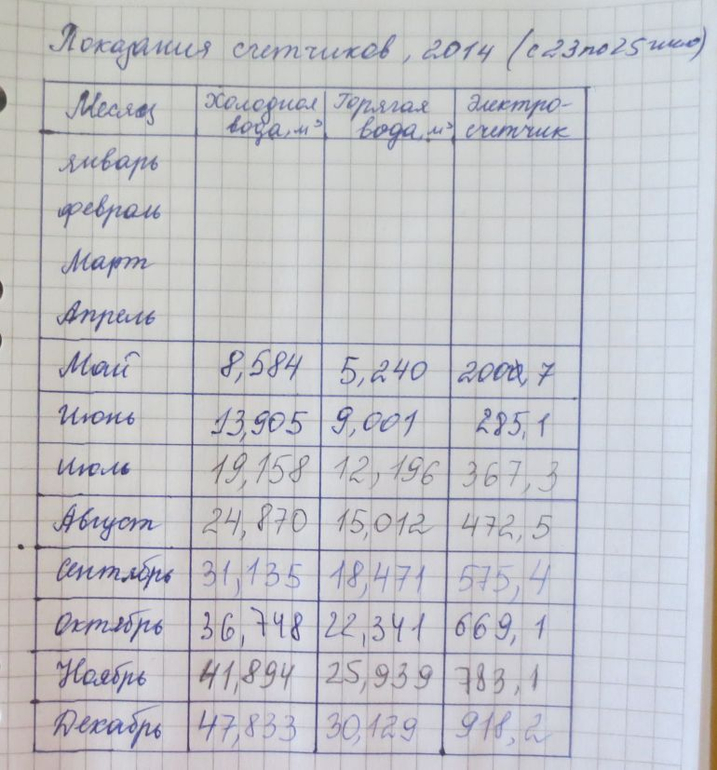 Показания счетчиков, 2014 (с 23 по 25 число)
Месяц Холодная вода, м³ Горячая вода, м³ Электро-счетчик
январь
февраль
Март
Апрель
Май 8,584 5,240
Июнь 13,905 9,001 285,1
Июль 19,158 12,196 367,3
Август 24,870 15,012 472,5
Сентябрь 31,135 18,471 575,4
Октябрь 36,748 22,341 669,1
Ноябрь 41,894 25,939 783,1
Декабрь 47,833 30,129 918,2